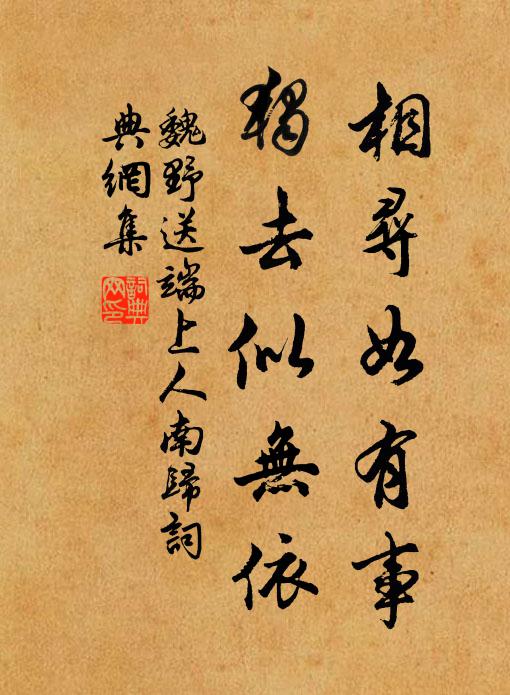 相尋如有事
獨去似無依
魏野送端上人南歸詞
典網集
詞典网印